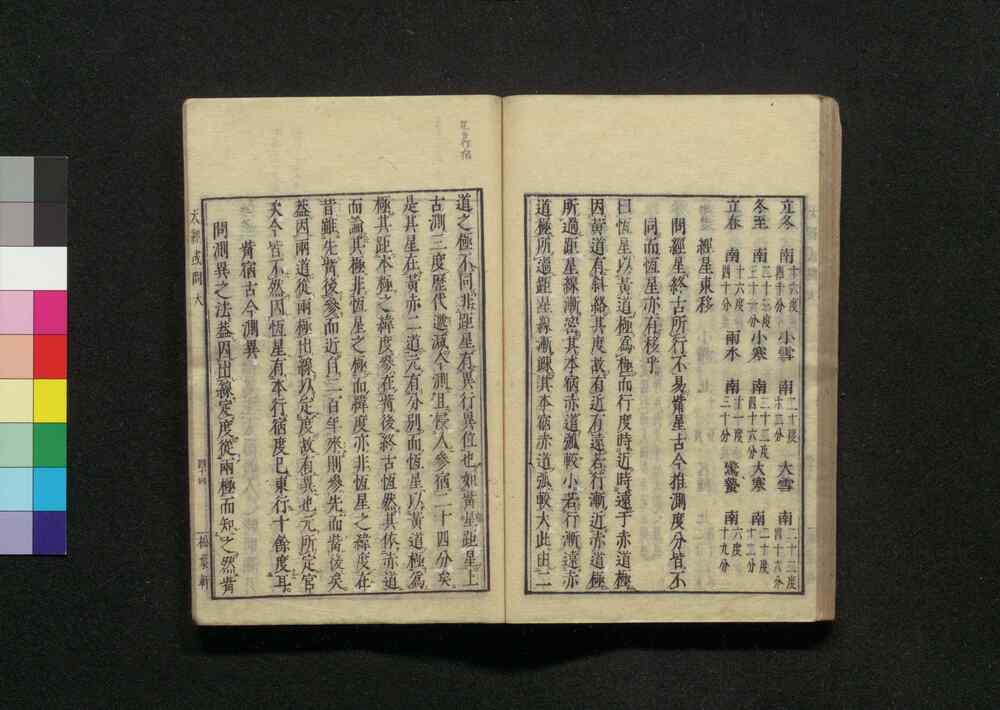 立冬 南十六度四十分 小雪 南二十度十二分 大雪 南二十二度四十六分
冬至 南二十三度三十一分 小寒 南二十二度四十六分 大寒 南二十度十二分
立春 南十六度四十分 雨水 南十一度三十分 驚蟄 南六度十九分
經星東移
問經星終古所行不易觜星古今推測度分皆不
同而恆星亦有移乎
曰恆星以黃道極爲極而行度時近時遠于赤道極
因黃道有斜絡其度故有近有遠若行漸近赤道極
所過距星線漸密其本宿赤道弧較小若行漸遠赤
道極所過距星線漸疎其本宿赤道弧較大此由二
道之極不同非距星有異行異位也如觜宿距星上
古測三度歷代遞減今測且侵入參宿二十四分矣
是其星在黃赤二道元有分別而恆星以黃道極爲
極其距本極之緯度參在觜後終古恆然其依赤道
而論其極非恆星之極而緯度亦非恆星之緯度在
昔雖先觜後參而近自二百年來則參先而觜後矣
蓋因兩道從兩極出線以定度故有異也元所定宮
次今皆不然因恆星有本行宿度已東行十餘度耳
觜宿古今測異
問測異之法蓋因出線定度從兩極而知之然觜
天經或問 天
松葉軒